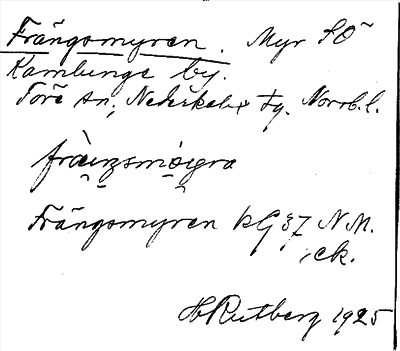 Frängsmyren. Myr SO
Kamlunge by.
Töre sn, Nederkalix tg. Norrb. l.
Frängsmyren kG 37 N M.
ck.
H Rutberg 1925